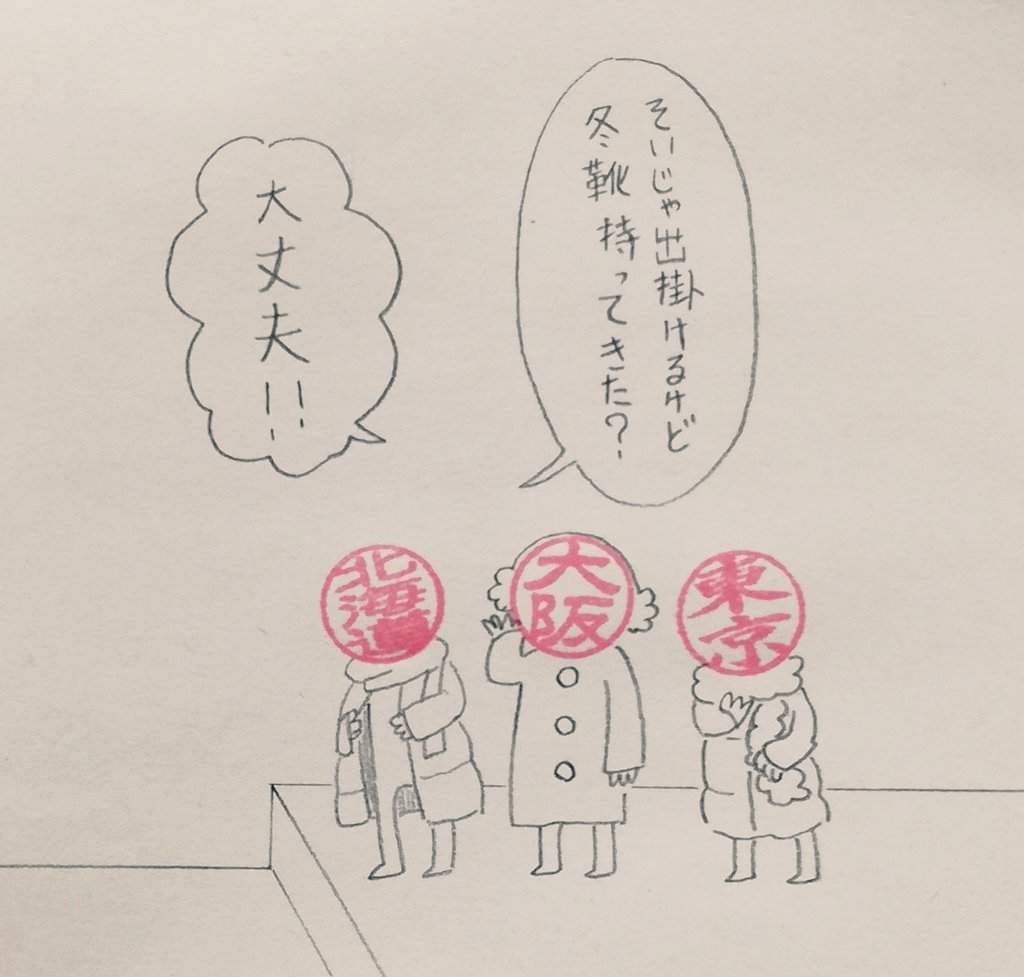 そいじゃ出掛けるけど
冬靴持ってきた？
大丈夫!!
北海道
大阪
東京